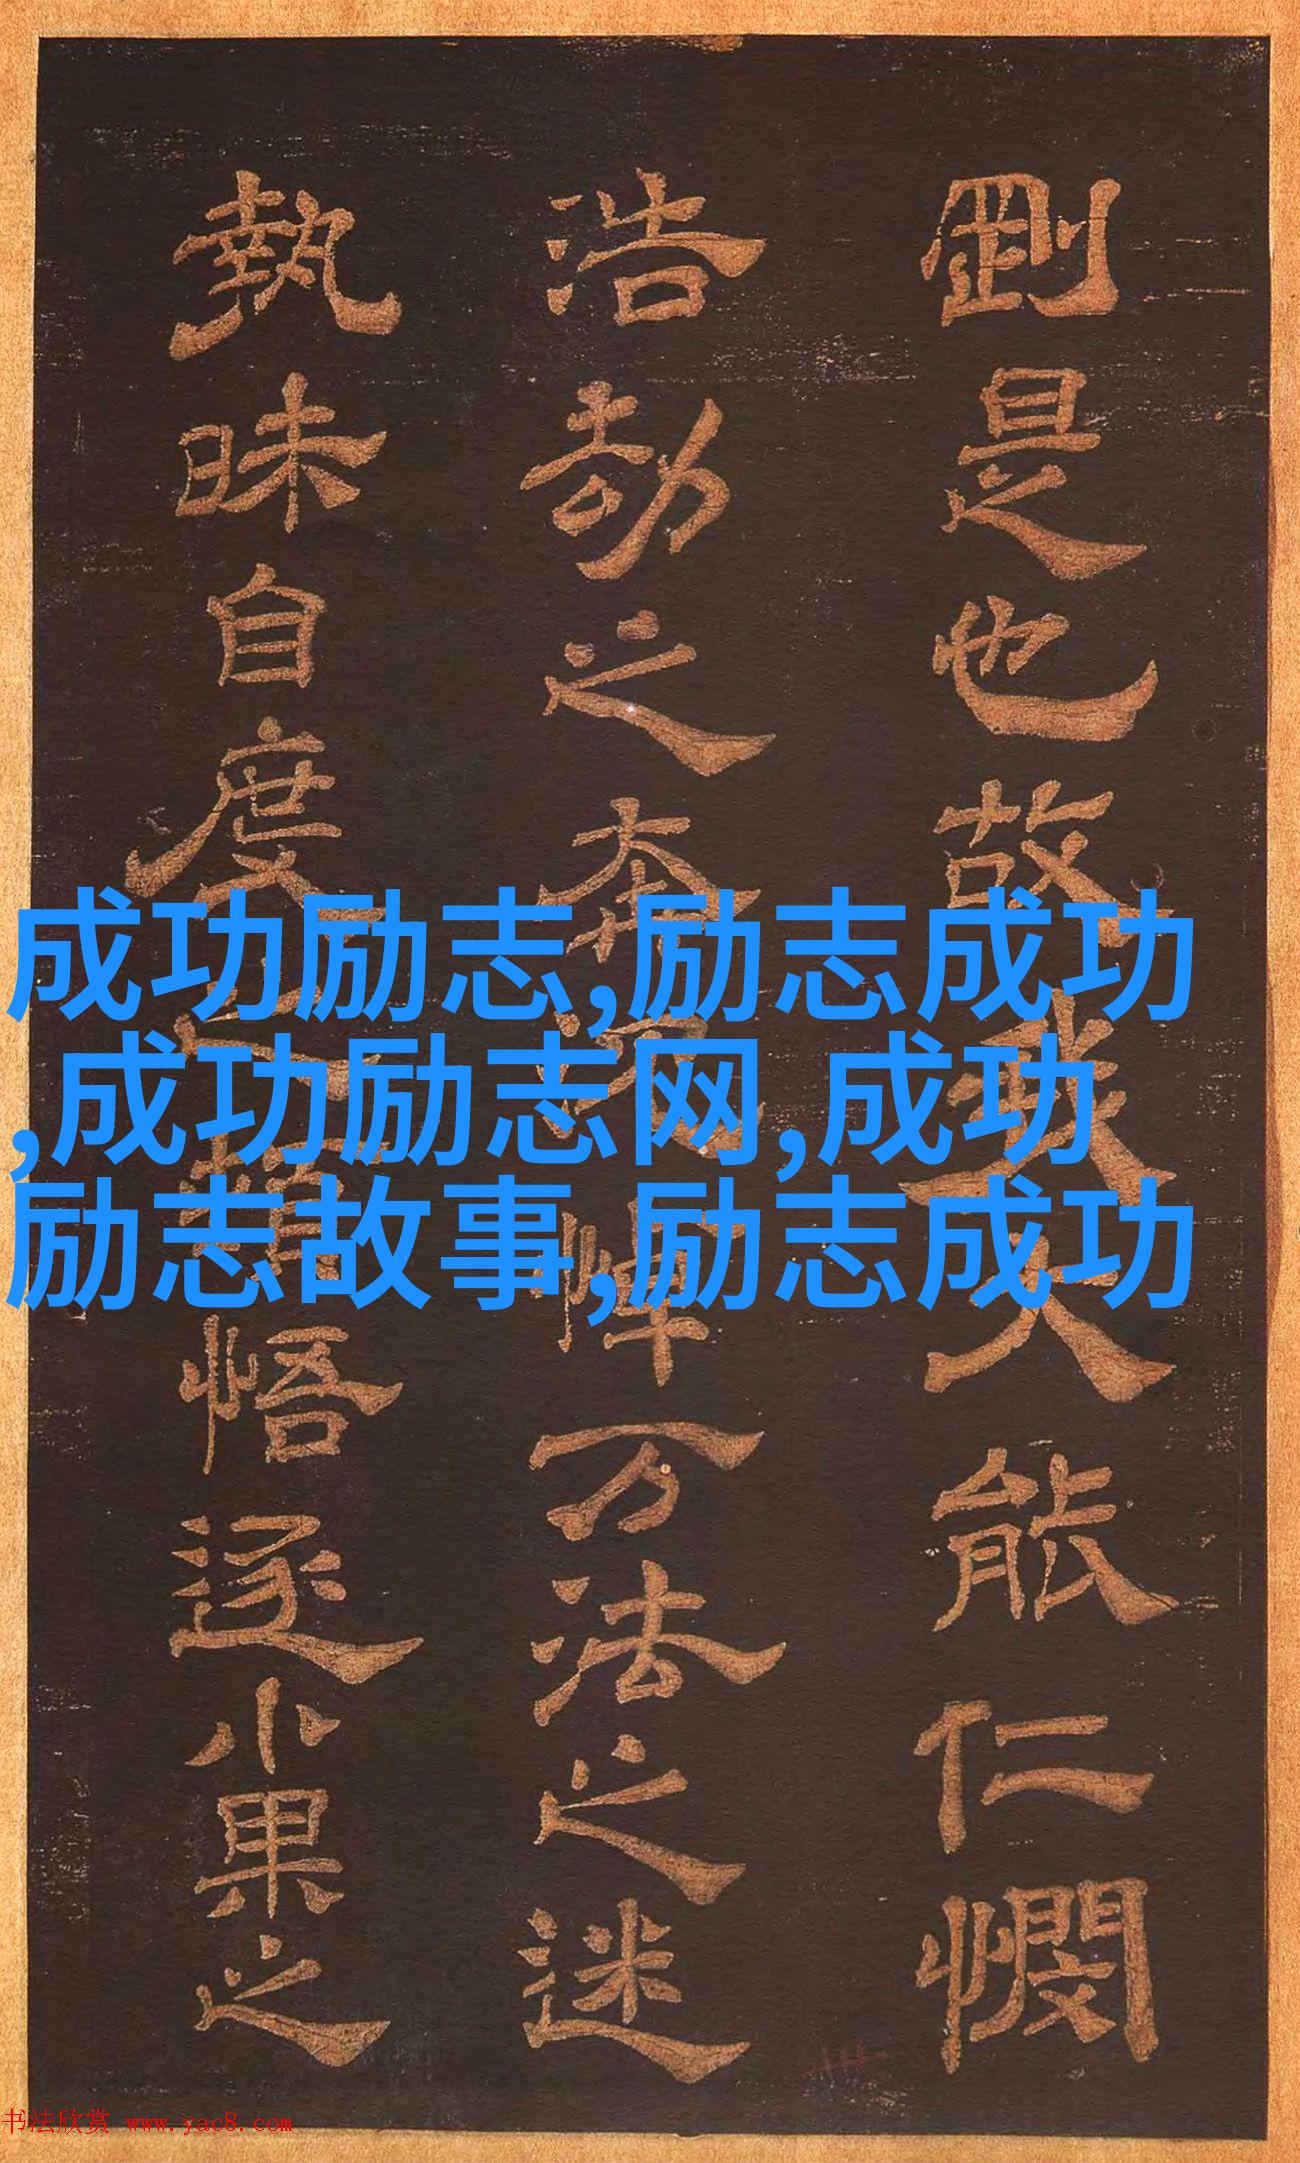 剛是也故我人能仁憫
浩劫之奔悼万法之迷
執昧自度之悟逐小果之
成功励志,励志成功
,成功励志网,成功
励志故事,励志成功
书法欣赏 www.yac8.com